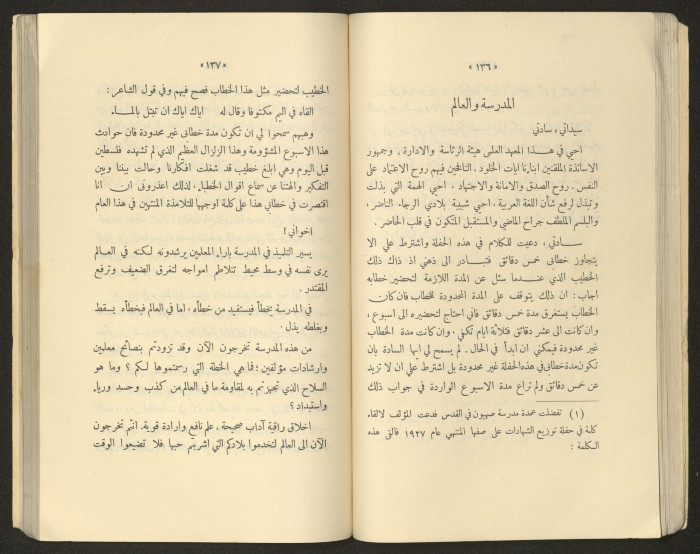 «١٣٦»
المدرسة والعالم
سيداتي، سادتي
احيي في هذا المعهد العلمي هيئة الرئاسة والادارة، وجمهور
الاساتذة الملقنين ابناءنا ايات الخلود، النافخين فيهم روح الاعتماد على
النفس. روح الصدق والامانة والاجتهاد، احيي الهمة التي بذلت
وتبذل لرفع شأن اللغة العربية، احيي شبيبة بلادي الرجاء الناضر،
والبلسم الملطف جراح الماضي والمستقبل المتكون في قلب الحاضر.
سادتي، دعيت للكلام في هذه الحفلة واشترط علي الا
يتجاوز خطابي خمس دقائق فتبادر الى ذهني اذ ذاك ذلك
الخطيب الذي عندما سئل عن المدة اللازمة لتحضير خطابه
اجاب: ان ذلك يتوقف على المدة المحدودة للخطاب فان كان
الخطاب يستغرق مدة خمس دقائق فاني احتاج لتحضيره الى اسبوع،
وان كانت الى عشر دقائق فثلاثة ايام تكفي، وان كانت مدة الخطاب
غير محدودة فيمكني ان ابدأ في الحال. لم يسمح لي ايها السادة بان
تكون مدة خطابي في هذه الحفلة غير محدودة بل اشترط علي ان لا تزيد
عن خمس دقائق ولم تراع مدة الاسبوع الواردة في جواب ذلك
(١) تفضلت عمدة مدرسة صهيون في القدس فدعت المؤلف لالقاء
كلمة في حفلة توزيع الشهادات على صفها المنتهي عام ١٩٢٧ فالقى هذه
الكلمة:
«١٣٧»
الخطيب لتحضير مثل هذا الخطاب فصح فيهم وفي قول الشاعر:
القاه في اليم مكتوفا وقال له اياك اياك ان تبتل بالماء.
وهبهم سمحوا لي ان تكون مدة خطابي غير محدودة فان حوادث
هذا الاسبوع المشؤومة وهذا الزلزال العظيم الذي لم تشهده فلسطين
قبل اليوم وهي ابلغ خطيب قد شغلت افكارنا وحالت بيننا وبين
التفكير والهتنا عن سماع اقوال الخطباء، لذلك اعذروني ان انا
اقتصرت في خطابي هذا على كلمة اوجهها للتلامذة المنتهين في هذا العام
اخواني!
يسير التلميذ في المدرسة بازاء المعلمين يرشدونه لكنه في العالم
يرى نفسه في وسط محيط تتلاطم امواجه لتغرق الضعيف وترفع
المقتدر.
في المدرسة يخطأ فيستفيد من خطأه، اما في العالم فبخطأه يسقط
وبغلطه يذل.
من هذه المدرسة تخرجون الآن وقد تزودتم بنصائح معلمين
وارشادات مؤلفين؛ فما هي الخطة التي رسمتموها لكم؟ وما هو
السلاح الذي تجهزتم به لمقاومة ما في العالم من كذب وحسد ورياء
واستبداد؟
اخلاق راقية آداب صحيحة، علم نافع وارادة قوية. انتم تخرجون
الآن الى العالم لتخدموا بلادكم التي اشربتم حبها فلا تضيعوا الوقت